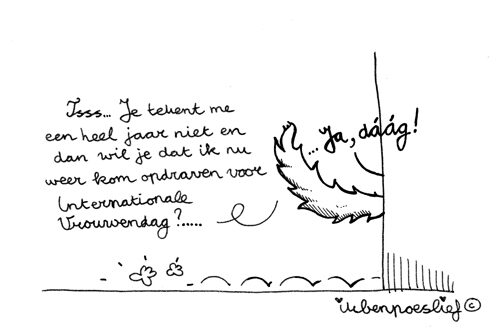 Tsss... Je tekent me
een heel jaar niet en
dan wil je dat ik nu
weer kom opdraven voor
Internationale
Vrouwendag?.....
... Ja, dáág!
ikbenpoeslief ©